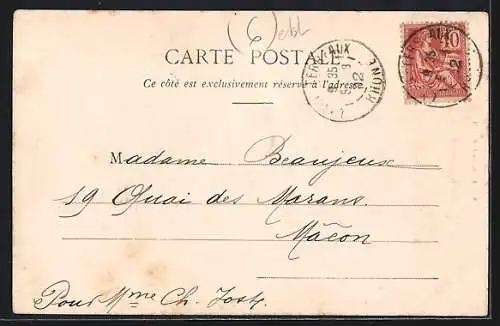 (6) ebl
CARTE POSTALE
Ce côté est exclusivement réservé à l'adresse
RHONE
10
Madame Beaujeux
19 Quai des Marans
Mâcon
Pour Mme Ch. Jost